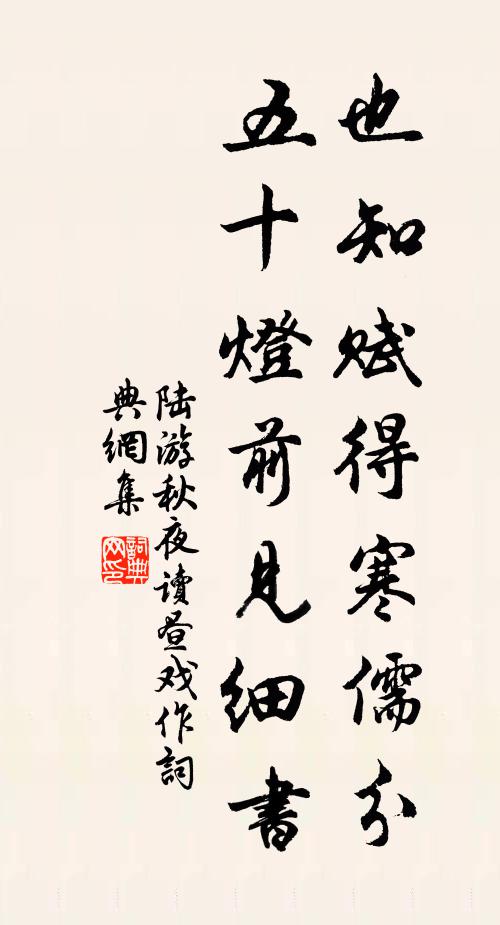 也知赋得寒儒分
五十燈前見细書
陆游秋夜讀昼戏作詞
典網集
詞典网印